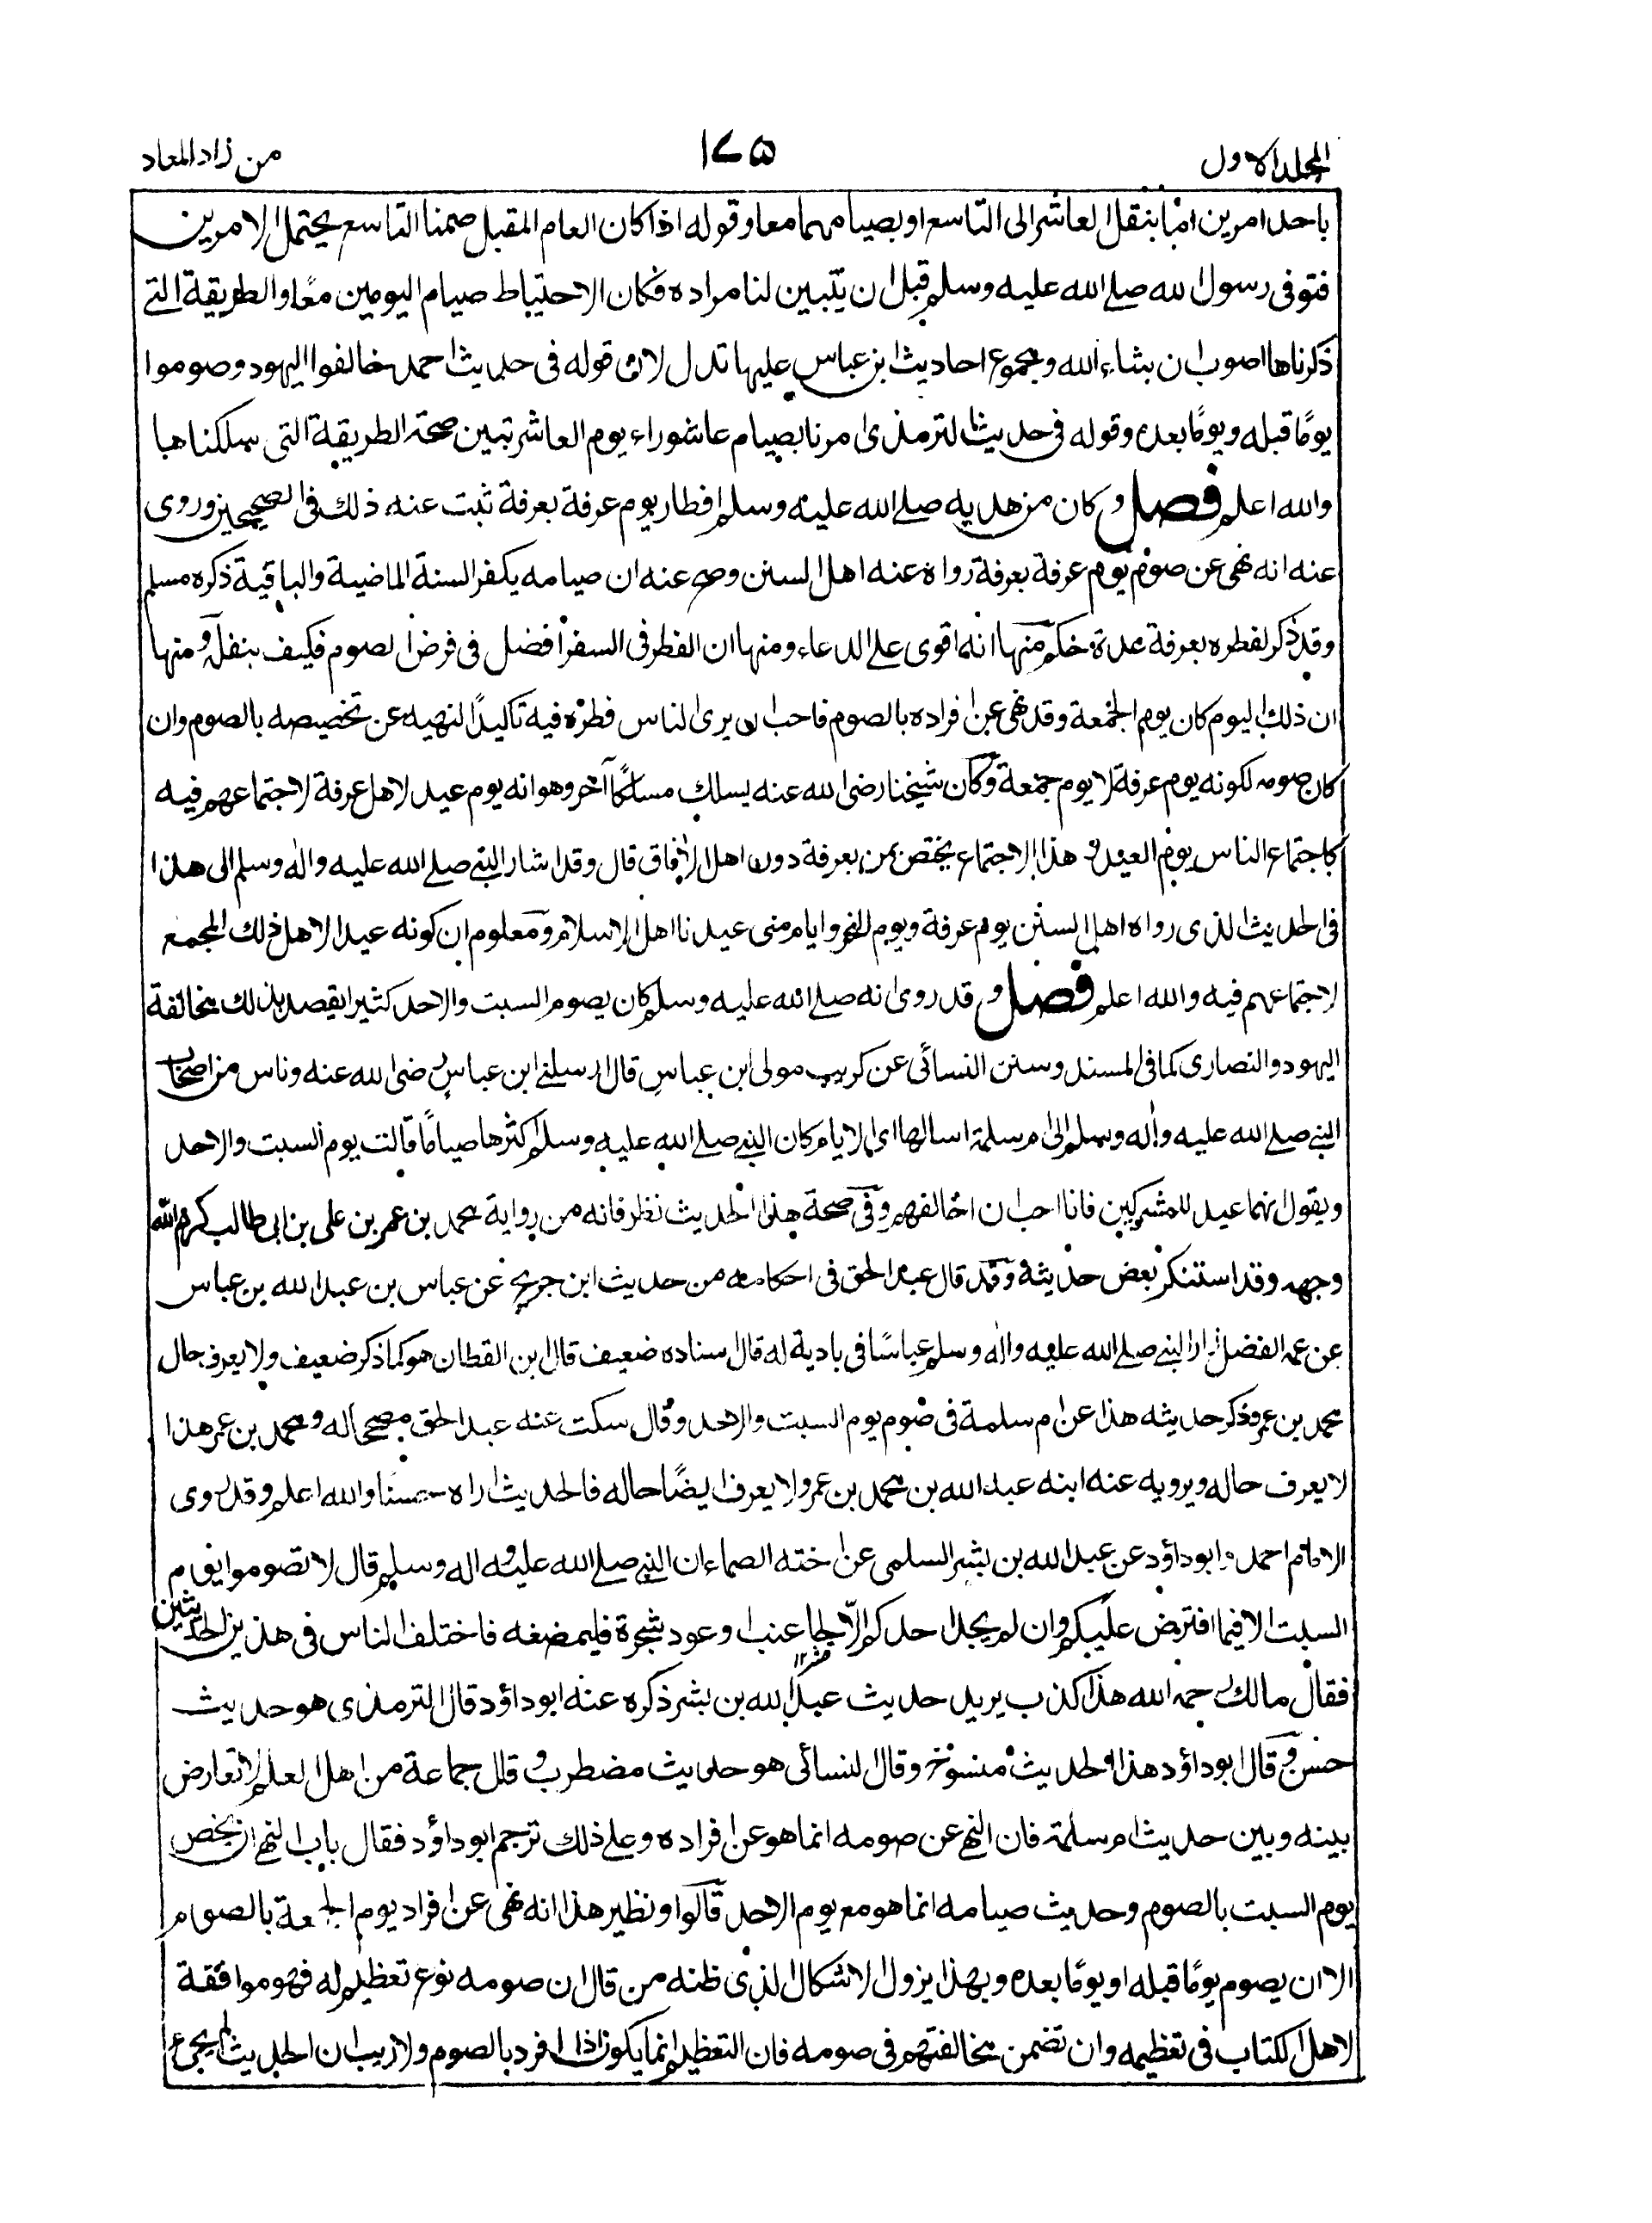 المجلد الاول
١٧٥
من زاد المعاد
باحد امرين اما بنقل العاشر الى التاسع او بصيامهما معا وقوله اذا كان العام المقبل صمنا التاسع يحتمل الامرين
فتوفى رسول الله صلے الله عليه وسلم قبل ان يتبين لنا مراده فكان الاحتياط صيام اليومين معًا والطريقة التے
ذكرناها اصوب ان شاء الله ومجموع احاديث ابن عباس عليها تدل لان قوله فى حديث احمد خالفوا اليهود وصوموا
يومًا قبله ويومًا بعده وقوله فى حديث الترمذى امرنا بصيام عاشوراء يوم العاشر تبين صحة الطريقة التى سلكناها
والله اعلم فصل وكان من هديه صلے الله عليه وسلم افطار يوم عرفة بعرفة ثبت عنه ذلك فى الصحيحين وروى
عنه انه نهى عن صوم يوم عرفة بعرفة رواه عنه اهل السنن وصح عنه ان صيامه يكفر السنة الماضية والباقية ذكره مسلم
وقد ذكر لفطره بعرفة عدة حكم منها انه اقوى علے الدعاء ومنها ان الفطر فى السفر افضل فى فرض الصوم فكيف بنفله ومنها
ان ذلك اليوم كان يوم الجمعة وقد نهى عن افراده بالصوم فاحب ان يرى الناس فطره فيه تاكيدًا لنهيه عن تخصيصه بالصوم وان
كان صومه لكونه يوم عرفة لا يوم جمعة وكان شيخنا رضى الله عنه يسلك مسلكًا آخر وهو انه يوم عيد لاهل عرفة لاجتماعهم فيه
كاجتماع الناس يوم العيد وهذا الاجتماع يختص بمن بعرفة دون اهل الآفاق قال وقد اشار النبے صلے الله عليه واله وسلم الى هذا
فى الحديث الذى رواه اهل السنن يوم عرفة ويوم النحر وايام منى عيدنا اهل الاسلام ومعلوم ان كونه عيدا لاهل ذلك المجمع
لاجتماعهم فيه والله اعلم فصل وقد روى انه صلے الله عليه وسلم كان يصوم السبت والاحد كثيرا يقصد بذلك مخالفة
اليهود والنصارى كما فى المسند وسنن النسائى عن كريب مولى ابن عباس قال ارسلنے ابن عباس رضى الله عنه وناس من اصحاب
النبے صلے الله عليه واله وسلم الى ام سلمة اسالها اى الايام كان النبے صلے الله عليه وسلم اكثرها صيامًا قالت يوم السبت والاحد
ويقول انهما عيد للمشركين فانا احب ان اخالفهم وفى صحة هذا الحديث نظر فانه من رواية محمد بن عمر بن على بن ابى طالب كرم الله
وجهه وقد استنكر بعض حديثه وقد قال عبد الحق فى احكامه من حديث ابن جريج عن عباس بن عبد الله بن عباس
عن عمه الفضل زار النبے صلے الله عليه واله وسلم عباسًا فى بادية له قال اسناده ضعيف قال ابن القطان هو كما ذكر ضعيف ولا يعرف حال
محمد بن عمر وذكر حديثه هذا عن ام سلمة فى صوم يوم السبت والاحد وقال سكت عنه عبد الحق مصححا له ومحمد بن عمر هذا
لا يعرف حاله ويرويه عنه ابنه عبد الله بن محمد بن عمر ولا يعرف ايضًا حاله فالحديث اراه حسنًا والله اعلم وقد روى
الامام احمد وابو داؤد عن عبد الله بن بشر السلمى عن اخته الصماء ان النبے صلے الله عليه واله وسلم قال لا تصوموا يوم
السبت الا فيما افترض عليكم وان لم يجد احدكم الّا لحا عنب او عود شجرة فليمضغه فاختلف الناس فى هذين الحديثين
فقال مالك رحمه الله هذا كذب يريد حديث عبد الله بن بشر ذكره عنه ابو داؤد قال الترمذى هو حديث
حسن وقال ابو داؤد هذا الحديث منسوخ وقال النسائى هو حديث مضطرب وقال جماعة من اهل العلم لا تعارض
بينه وبين حديث ام سلمة فان النهے عن صومه انما هو عن افراده وعلے ذلك ترجم ابو داؤد فقال باب النهے ان يخص
يوم السبت بالصوم وحديث صيامه انما هو مع يوم الاحد قالوا ونظير هذا انه نهى عن افراد يوم الجمعة بالصوم
الا ان يصوم يومًا قبله او يومًا بعده وبهذا يزول الاشكال الذى ظنه من قال ان صومه نوع تعظيم له فهو موافقة
لاهل الكتاب فى تعظيمه وان تضمن مخالفتهم فى صومه فان التعظيم انما يكون اذا افرد بالصوم ولا ريب ان الحديث لم يجئ